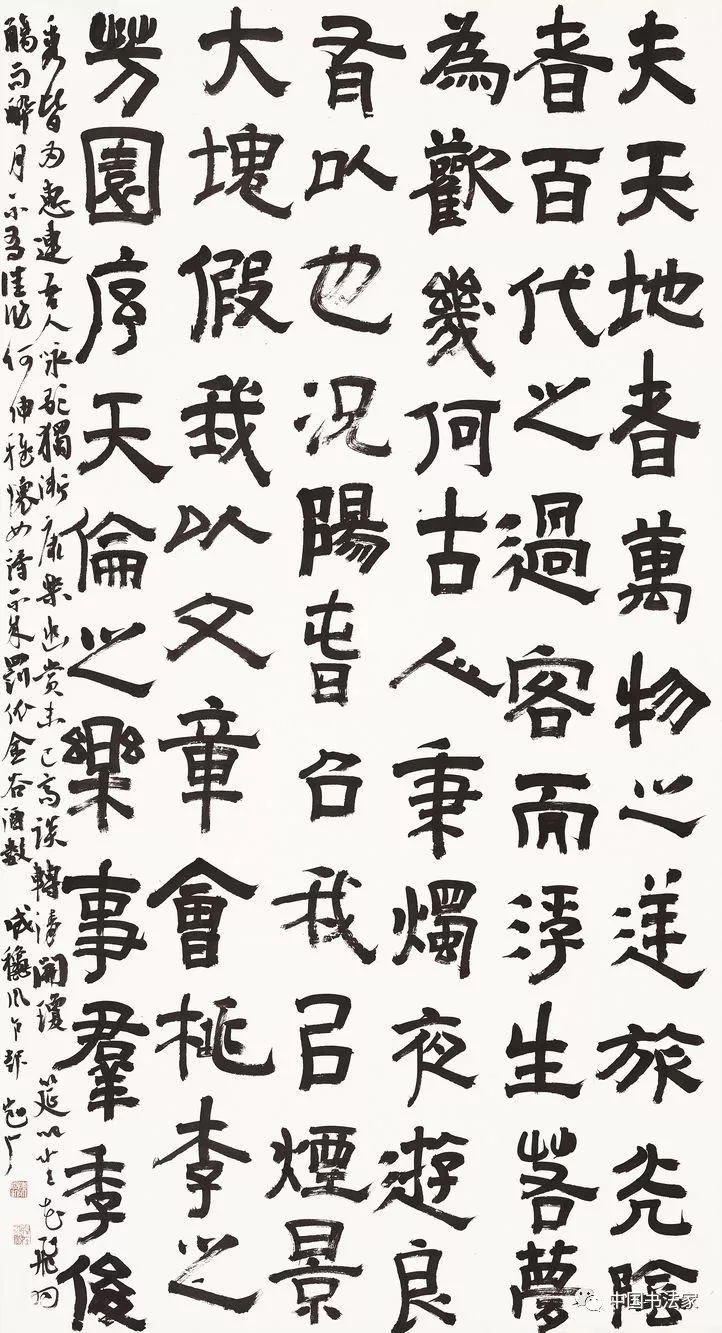 夫天地者萬物之逆旅光陰
者百代之過客而浮生若夢
為歡幾何古人秉燭夜遊良
有以也況陽春召我以煙景
大塊假我以文章會桃李之
芳園序天倫之樂事羣季俊
秀皆為惠連吾人詠歌獨慚康樂幽賞未已高談轉清開瓊筵以坐花飛羽
觴而醉月不有佳作何伸雅懷如詩不成罰依金谷酒數
中国书法家